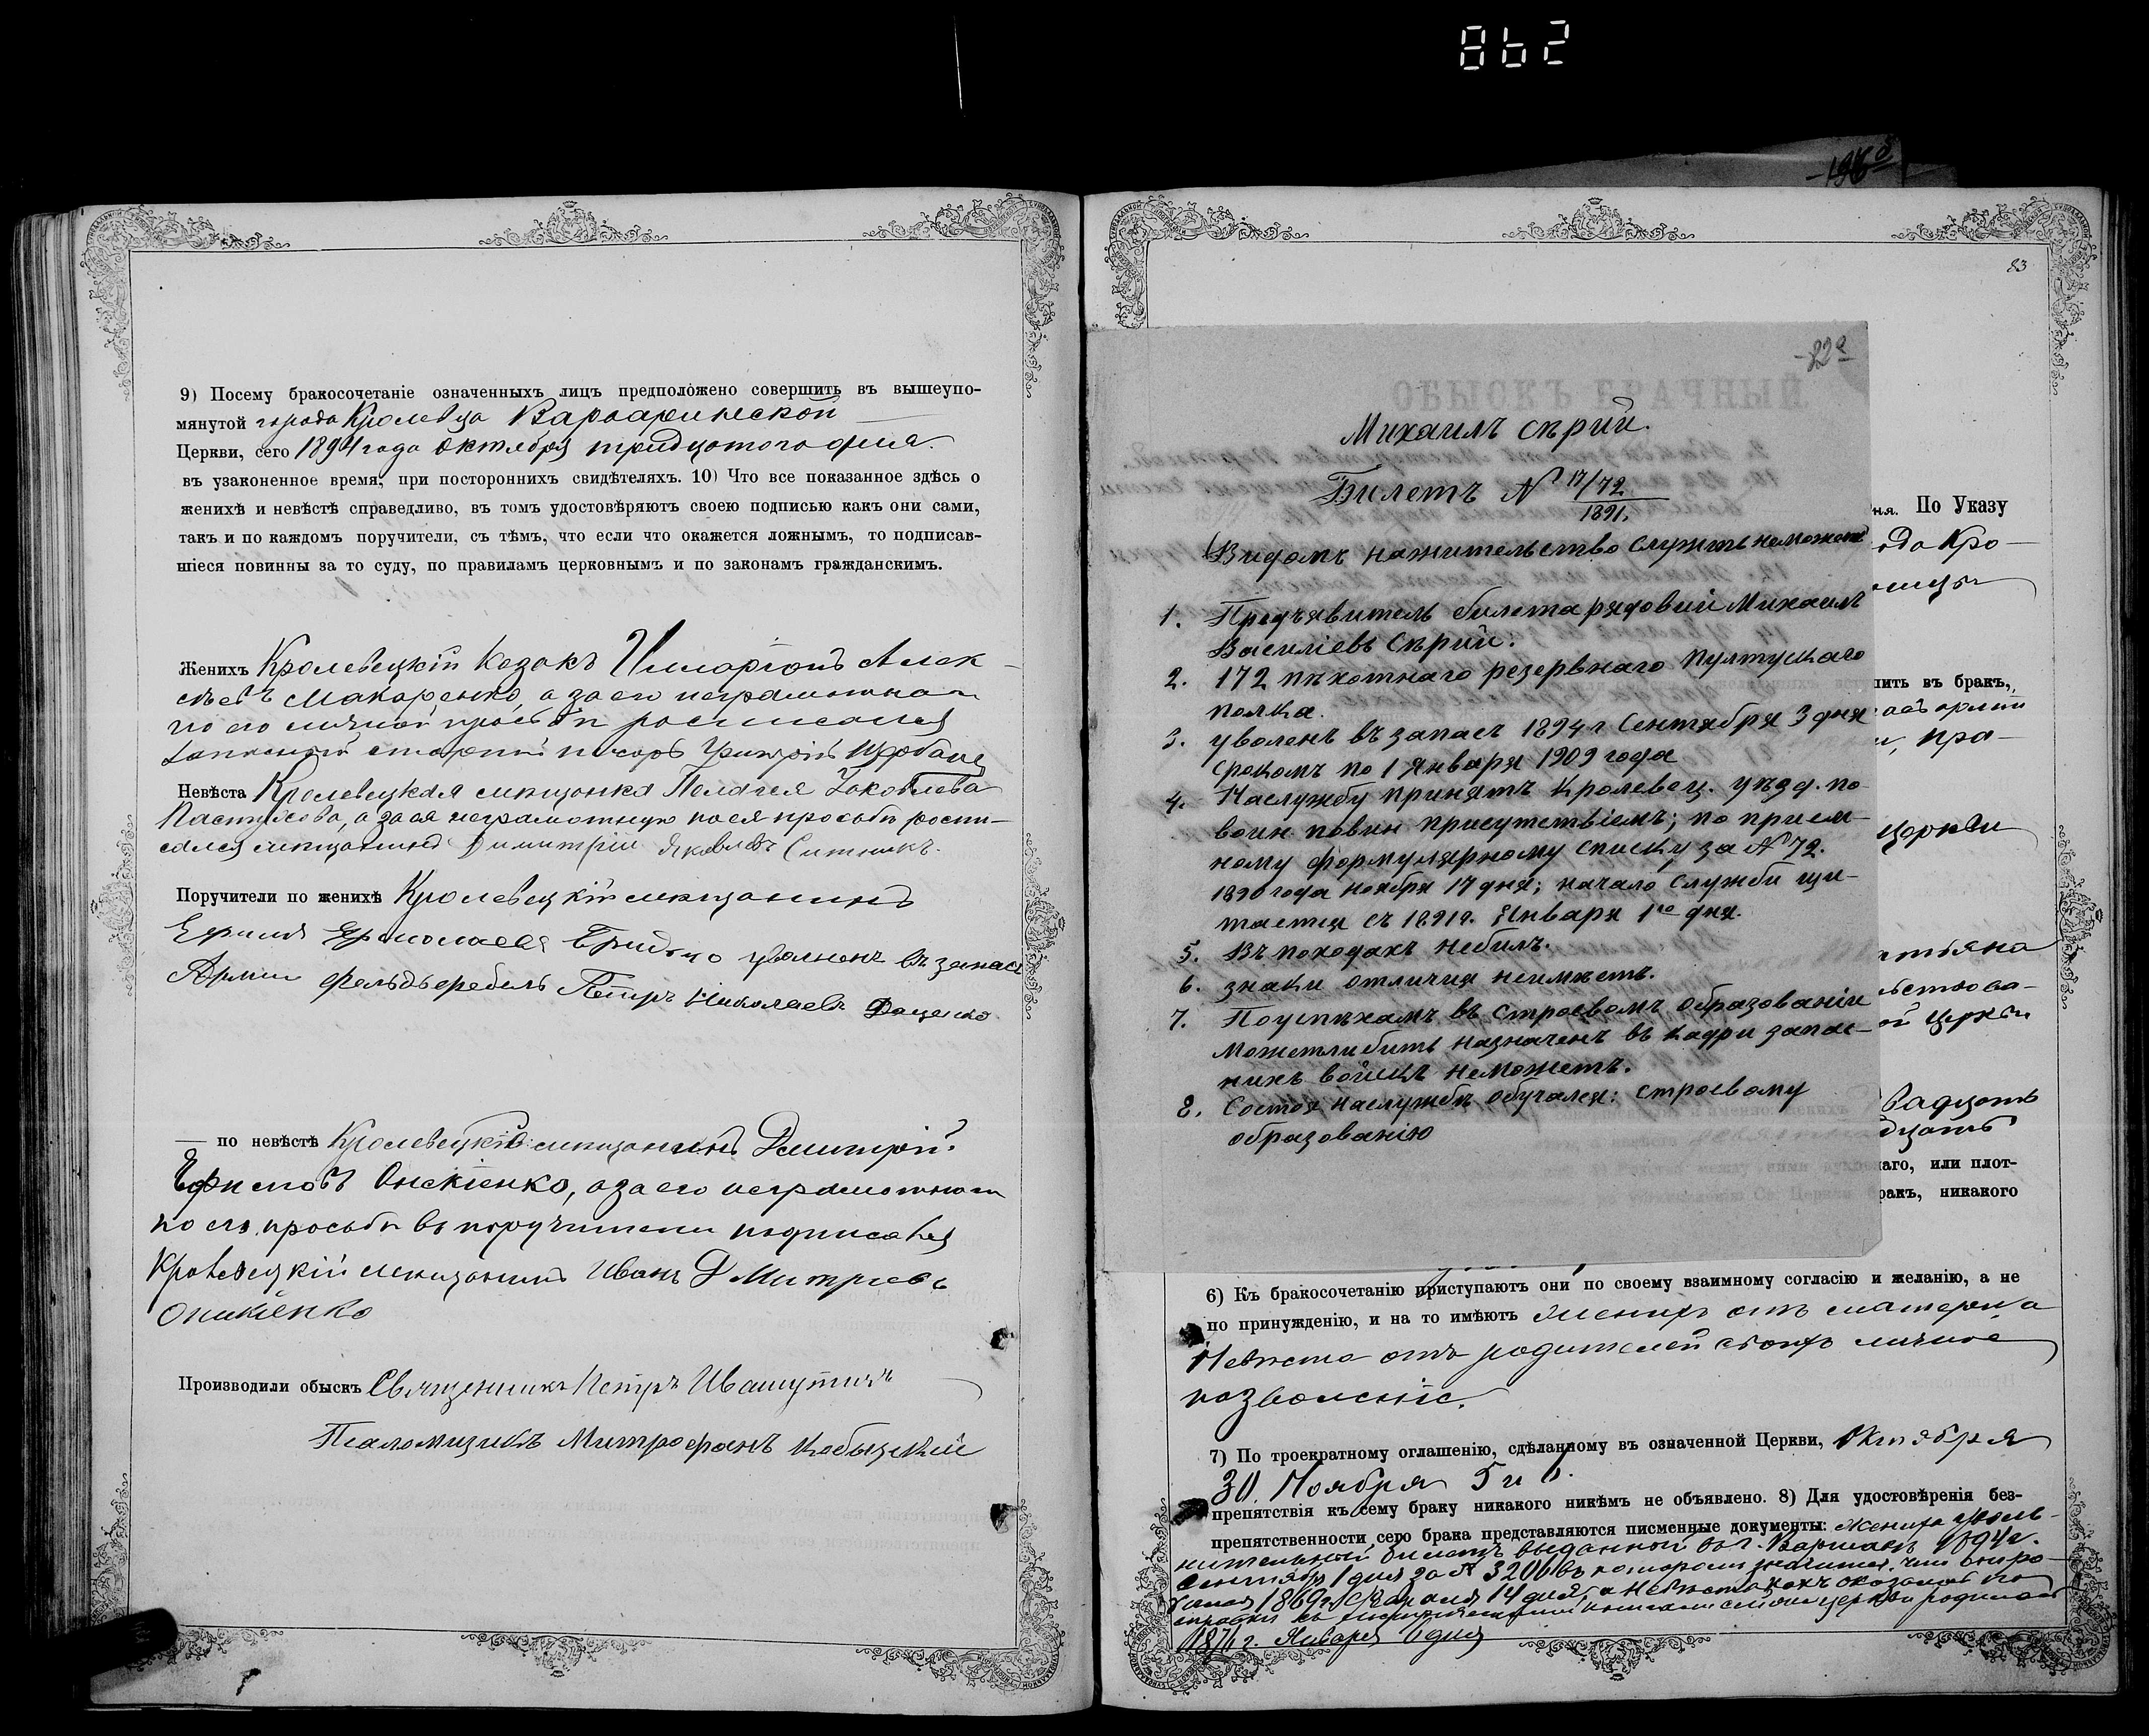 862
9) Посему бракосочетаніе означенныхъ лицъ предположено совершить въ вышеупо-
мянутой города Кролевца Варваринской
Церкви, сего 1894 года Октября тридцатого дня
въ узаконенное время, при постороннихъ свидѣтеляхъ. 10) Что все показанное здѣсь о
женихѣ и невѣстѣ справедливо, въ томъ удостовѣряютъ своею подписью какъ они сами,
такъ и по каждомъ поручители, съ тѣмъ, что если что окажется ложнымъ, то подписав-
шіеся повинны за то суду, по правиламъ церковнымъ и по законамъ гражданскимъ.
Женихъ Кролевецкій Козакъ Иларіонъ Алек-
сѣевъ Макаренко, а за его неграмотнаго
по его личной прозьбѣ росписался
запасный старшій писарь
Невѣста Кролевецкая мѣщанка Пелагея Яковлева
Пастухова, а за ея неграмотную по ея прозьбѣ роспи-
сался мѣщанинъ Димитрій Яковлевъ Ситникъ.
Поручители по женихѣ Кролевецкій мѣщанинъ
Ефимъ Ермолаевъ уволенъ въ запасъ
Арміи фельдфебель Петръ Николаевъ Даценко
— по невѣстѣ Кролевецкій мѣщанинъ Дмитрій
Ефимовъ Оникіенко, а за его неграмотнаго
по его просьбѣ въ поручители подписался
Кролевецкій мѣщанинъ Иванъ Дмитріевъ
Оникіенко
Производили обыскъ Священникъ Петръ Ивашутичъ
Псаломщикъ Митрофанъ Кобызскій
83
-82а
Михаилъ Сѣрий.
Билетъ № 17/72
1891.
Видомъ нажительство служить неможетъ
1. Предъявитель билета рядовий Михаилъ
Василіевъ Сѣрий.
2. 172 пѣхотнаго резервнаго Пултускаго
полка.
3. уволенъ въ запасъ 1894 г Сентября 3 дня
срокомъ по 1 Января 1909 года
4. Наслужбу принятъ Кролевец. уѣзд. по
воин повин присутствіемъ; по пріем-
ному формулярному списку за № 72.
1890 года Ноября 17 дня; начало служби щи-
тается съ 1891 г. Января 1го дня.
5. Въ походахъ небилъ.
6. знаки отличия неимѣетъ.
7. Поуспѣхамъ въ строевомъ образованіи
можетлибить назначенъ въ кадри запас-
нихъ войскъ неможетъ.
8. Состоя наслужбѣ обучался: строевому
образованію
ня. По Указу
ода Кро-
ить въ бракъ,
, пра-
церкви
атьяна
ой церкви
Двадцать
наго, или плот-
ракъ, никакого
6) Къ бракосочетанію приступаютъ они по своему взаимному согласію и желанію, а не
по принужденію, и на то имѣютъ Женихъ отъ матери а
Невѣста отъ родителей своихъ личное
позволеніе.
7) По троекратному оглашенію, сдѣланному въ означенной Церкви, Октября
30 Ноября 5 и 6.
препятствія къ сему браку никакого никѣмъ не объявлено. 8) Для удостовѣренія без-
препятственности сего брака представляются писменные документы: Жениха уволь-
нительный билетъ выданный въ г. Варшавѣ 1894 г.
Сентября 1 дня за № 3206 въ которомъ значится, что онъ ро-
1869 г. 14 дня, а Невѣста какъ оказалось по
справкѣ съ метрическими книгами сей церкви родилась
187 г. Января 6 дня